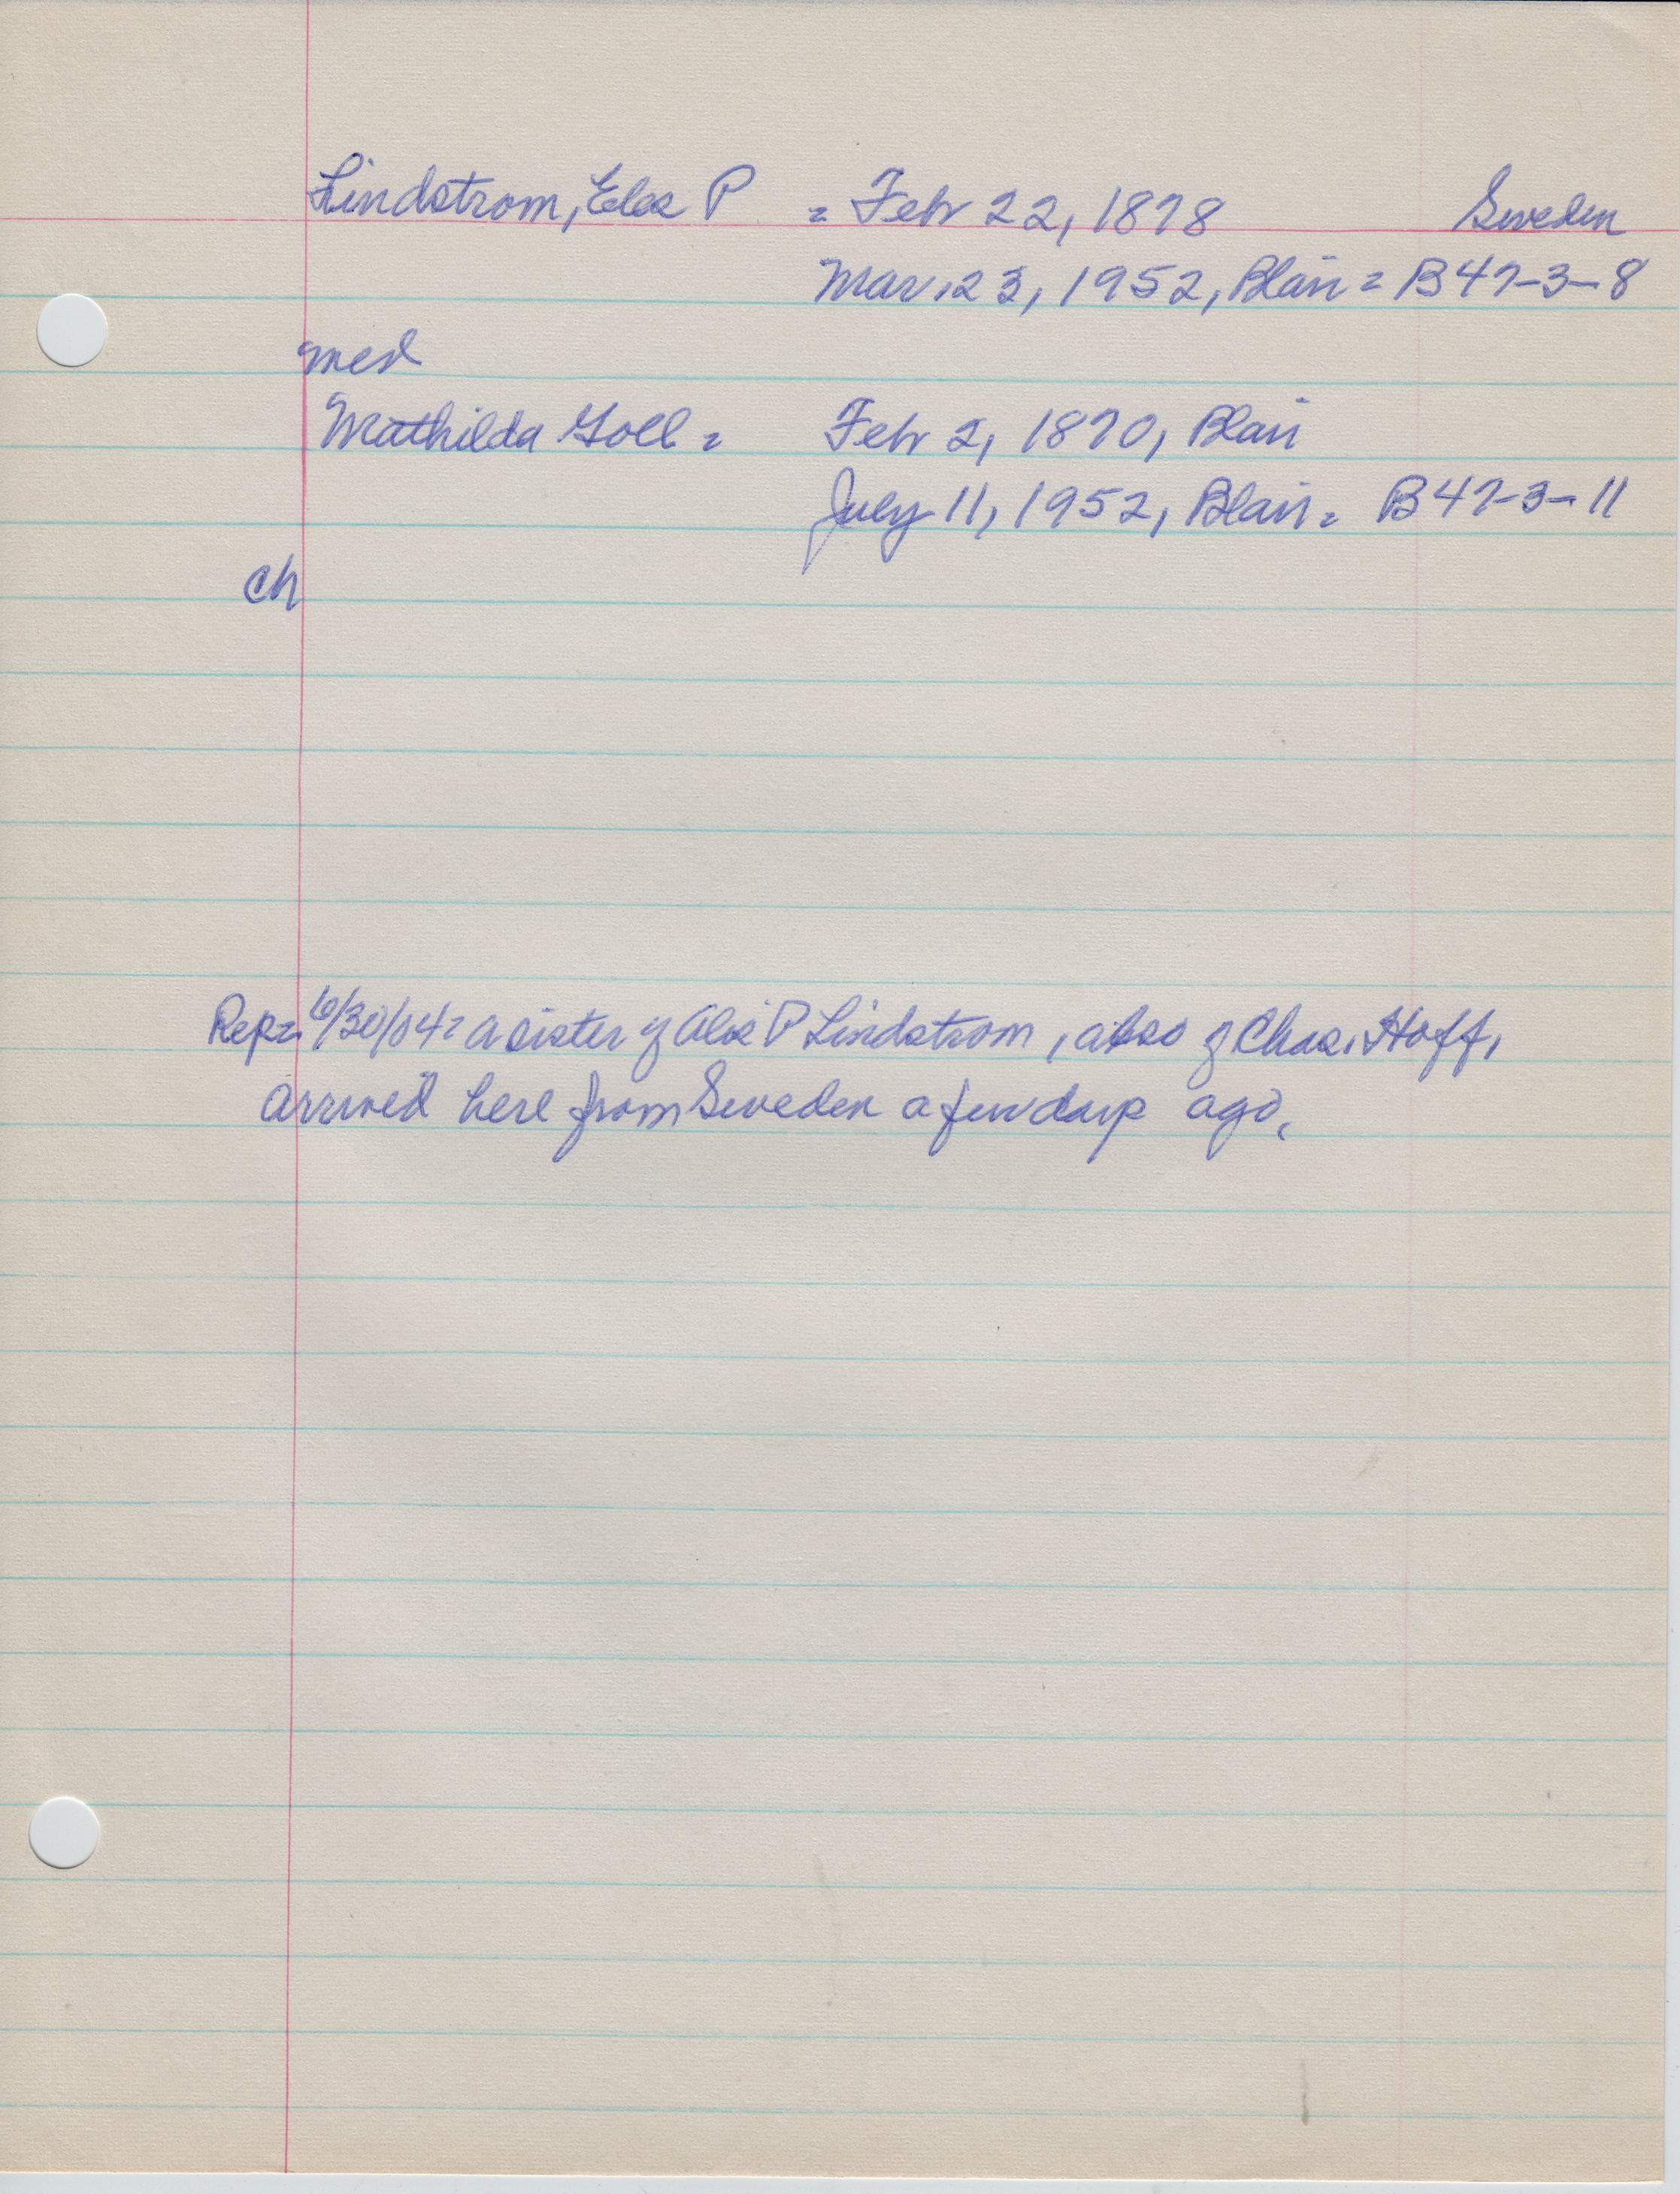 Lindstrom, Elos P = Feb 22, 1878 Sweden
Mar. 23, 1952, Blair = B47-3-8
med
Mathilda Goll = Feb 2, 1870, Blair
July 11, 1952, Blair = B47-3-11
ch
Rep= 6/30/04= a sister of Alos P Lindstrom, also of Chas. Hoff,
arrived here from Sweden a few days ago.